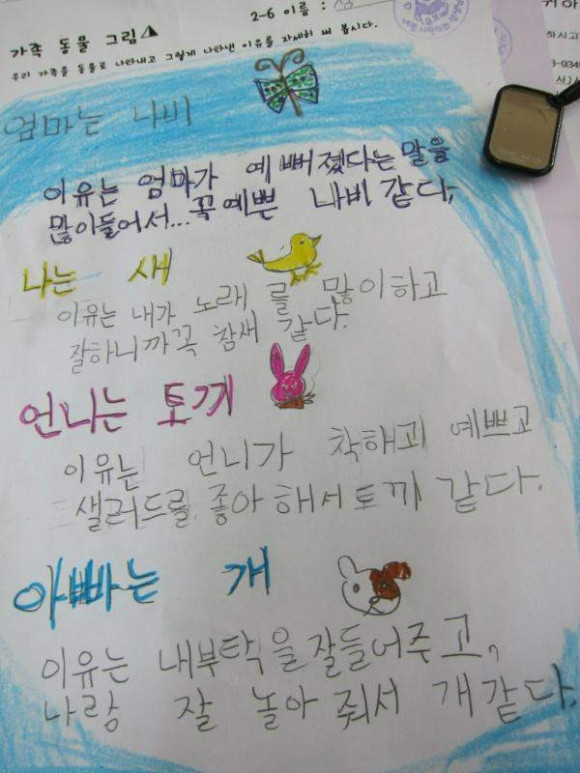 2-6 이름 :
가족 동물 그림
우리 가족을 동물로 나타내고 그렇게 나타낸 이유를 자세히 써 봅시다.
엄마는 나비
이유는 엄마가 예뻐졌다는 말을
많이들어서...꼭 예쁜 나비 같다,
나는 새
이유는 내가 노래를 많이하고
잘하니까꼭 참새 같다.
언니는 토끼
이유는 언니가 착해고 예쁘고
샐러드를 좋아해서토끼 같다.
아빠는 개
이유는 내부탁을잘들어주고,
나랑 잘 놀아 줘서 개같다,
하시고